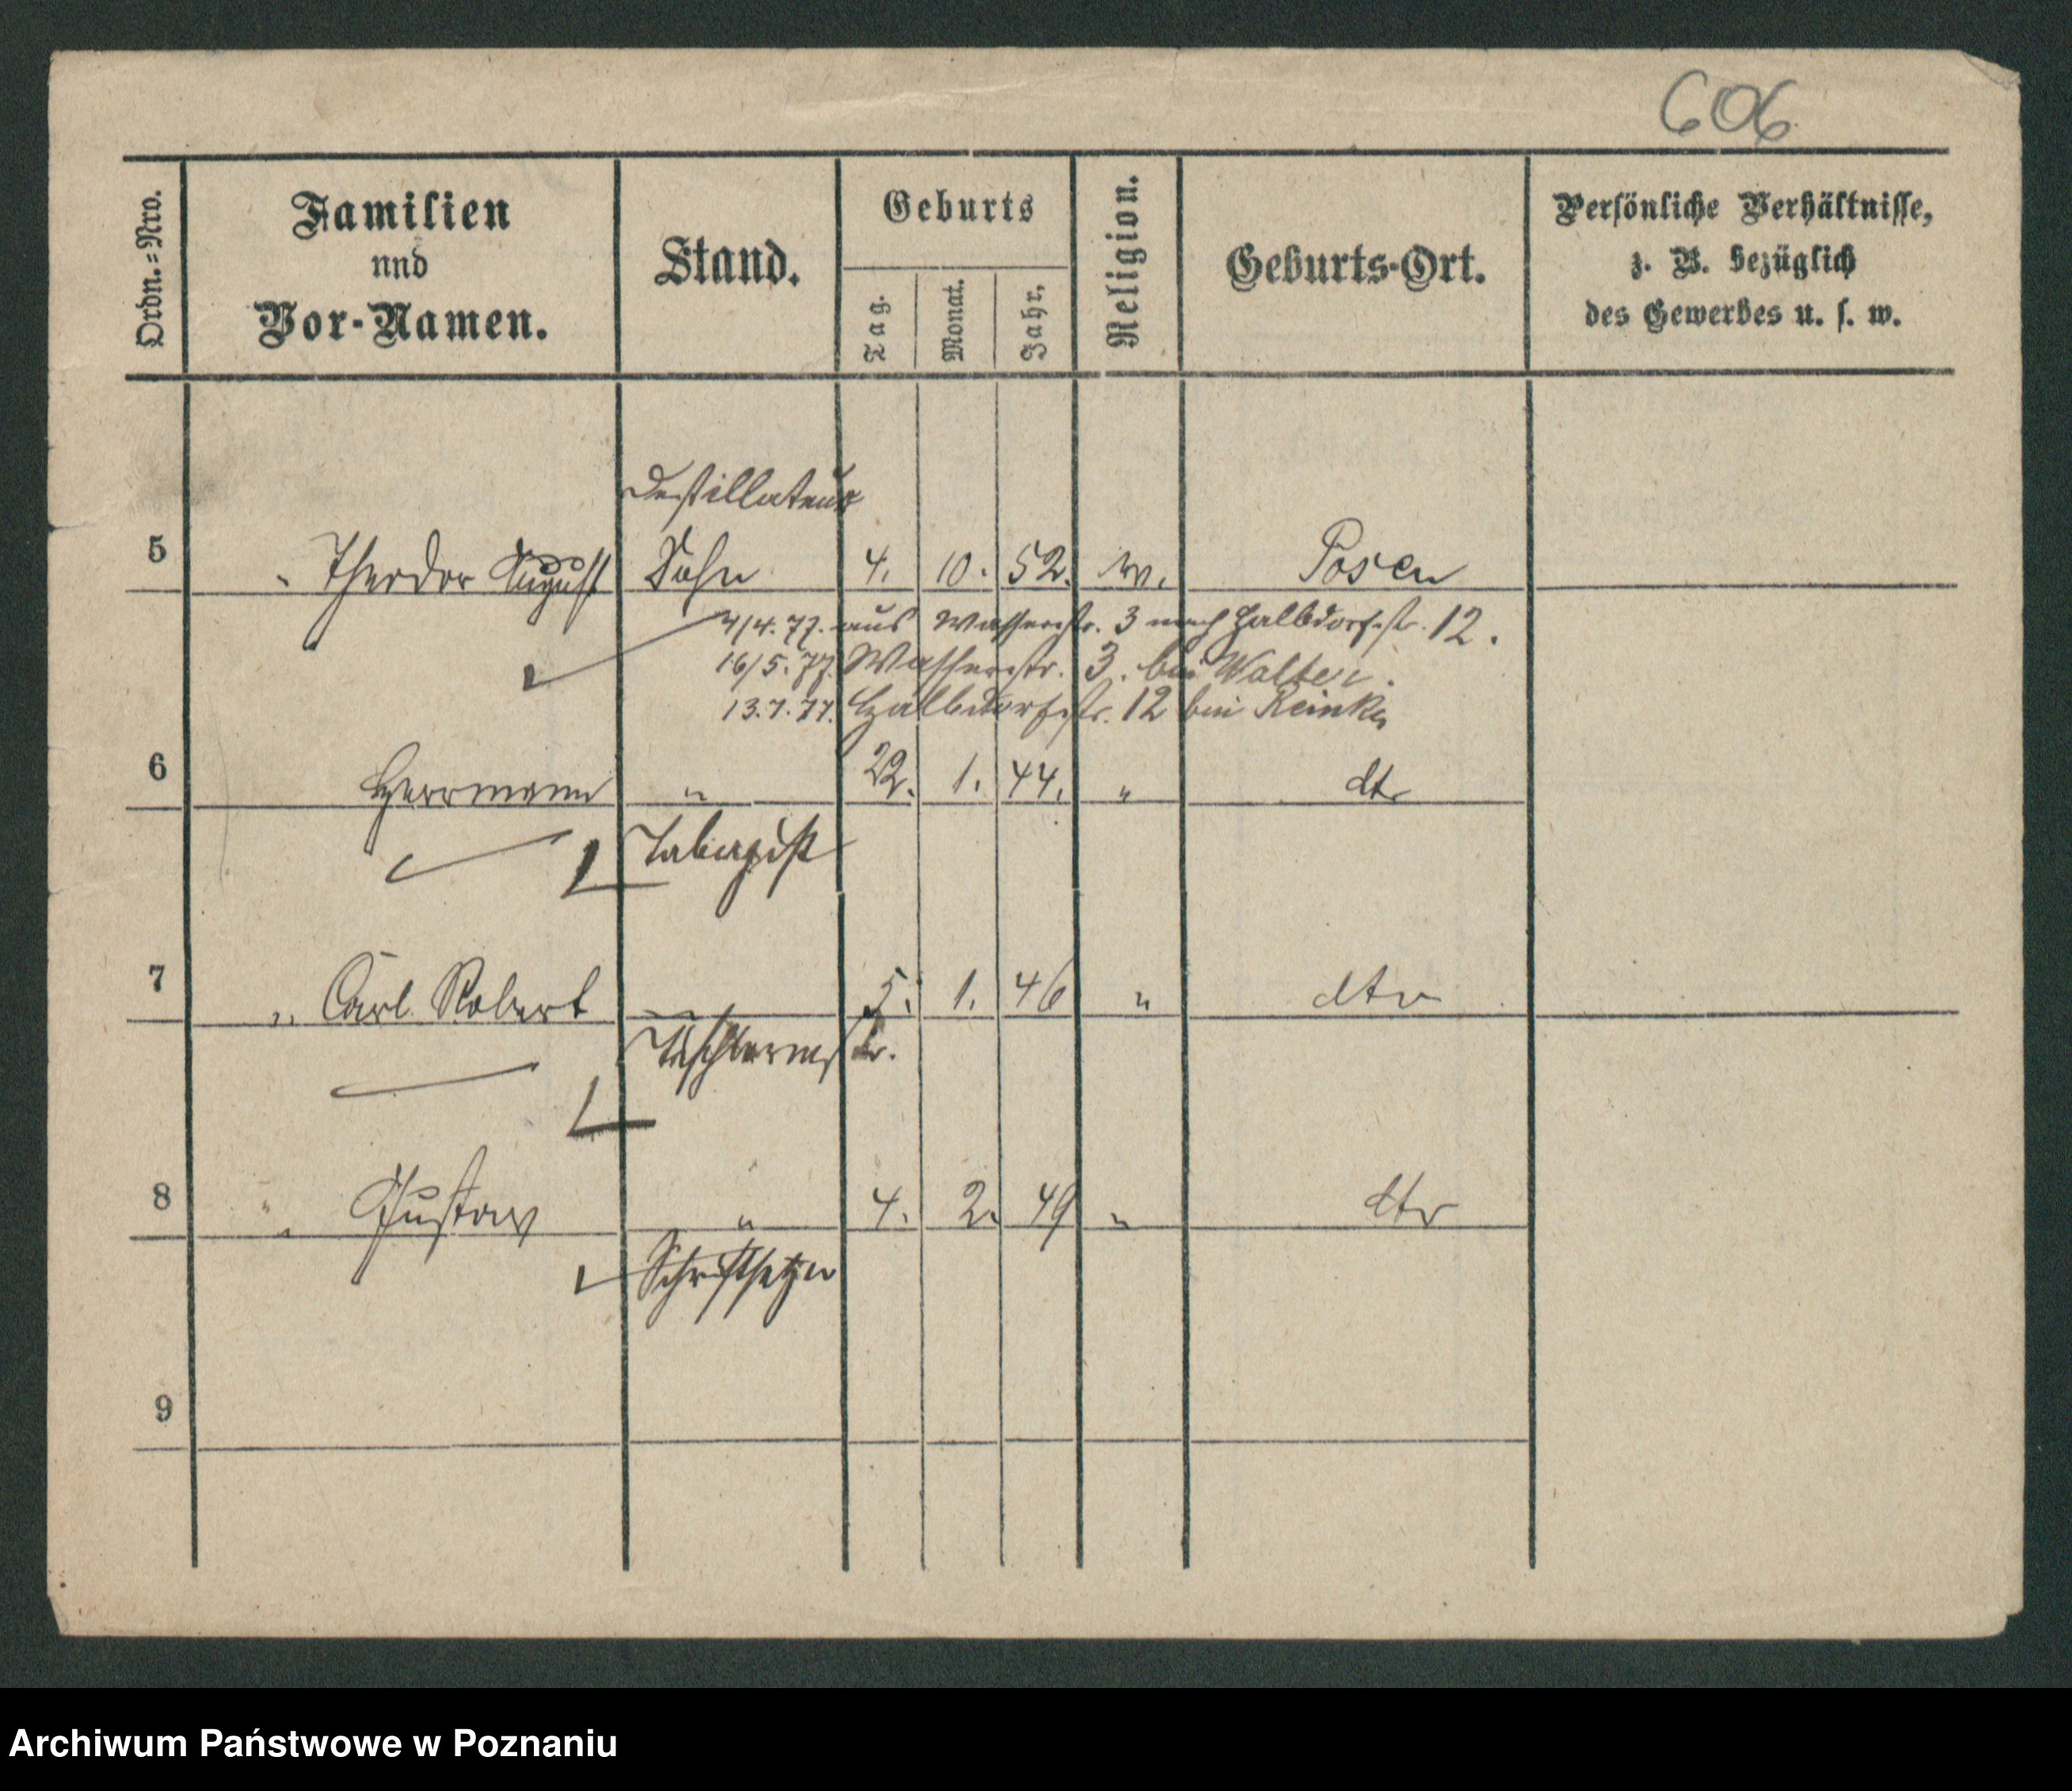 606
Ordn.=Nro.
Familien
nnd
Vor-Namen.
Stand.
Geburts
Tag.
Monat.
Jahr.
Religion.
Geburts-Ort.
Persönliche Verhältnisse,
z. B. bezüglich
des Gewerbes u. s. w.
Destillateur
5 " Theodor August Sohn 4. 10. 52. Posen
4/4. 77. aus Wasserstr. 3 nach Halbdorfstr. 12.
16/5. 77. Wasserstr. 3. bei Walter.
13.7.77. Halbdorfstr. 12 bei Reinke
6 Herrmann " 22. 1. 44. " dto
Tabagist
7 " Carl Robert " 5. 1. 46 " dto
Tischlermstr.
8 " Gustav " 4. 2. 49 " dto
Schriftsetzer
9
Archiwum Państwowe w Poznaniu